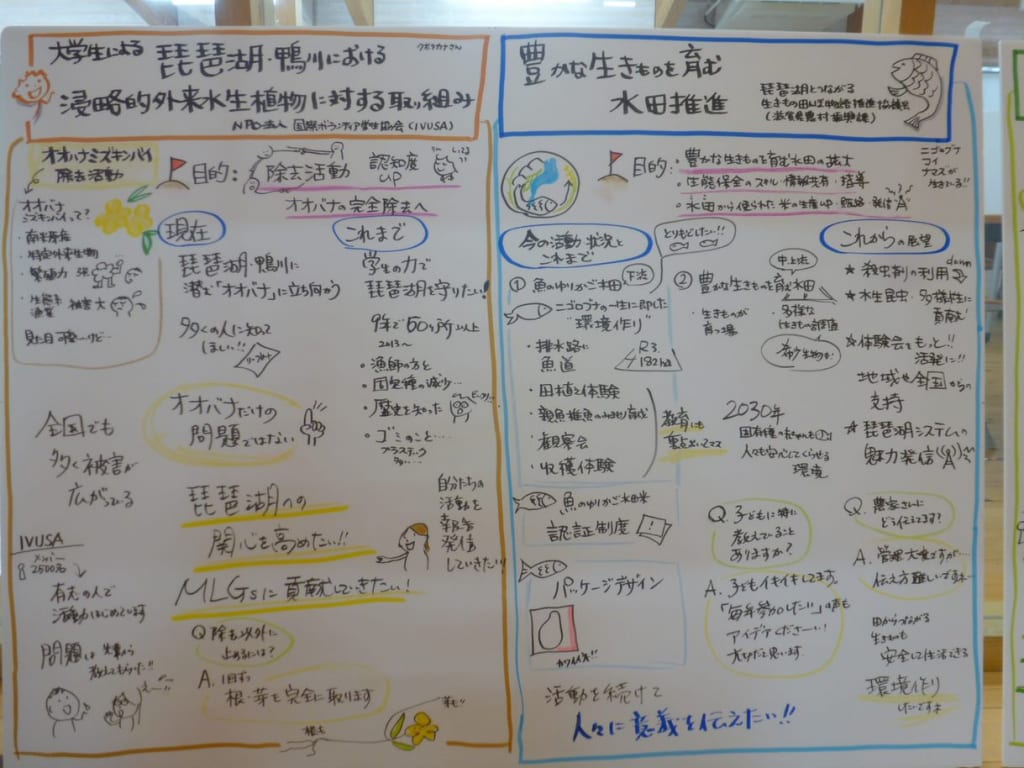 大学生による
琵琶湖・鴨川における
クボタカナさん
侵略的外来水生植物に対する取り組み
NPO法人 国際ボランティア学生協会(IVUSA)
オオバナミズキンバイ
除去活動
オオバナ
ミズキンバイって?
・南米原産
・特定外来生物
・繁殖力
・生態系
漁業
被害大
目的:
除去活動
認知度
UP
オオバナの完全除去へ
現在
琵琶湖・鴨川に
潜む「オオバナ」に立ち向かう
多くの人に知って
ほしい!!
これまで
学生の力で
琵琶湖を守りたい!
9年で50ヶ所以上
2013〜
・漁師の方と
・固有種の減少…
・歴史を知った
・ゴミのこと…
プラスチック
多…
オオバナだけの
問題ではない
全国でも
多く被害が
広がっている
琵琶湖への
関心を高めたい!!
MLGsに貢献していきたい!
自分たちの
活動を
報告
発信
していきたい
IVUSA
メンバー
2500名
有志の人で
活動はじめています
問題は
教えてもらった!!
Q 除去以外に
止めるには?
A. 1回ずつ
根・芽を完全に取ります
豊かな生きものを育む
水田推進
琵琶湖とつながる
生きもの田んぼ物語推進協議会
(滋賀県農村振興課)
目的:
・豊かな生きものを育む水田の拡大
・生態保全のスキル・情報共有・指導
・水田から作られた米の生産UP・販路・発信
ニゴロブナ
コイ
ナマズが
生きている!!
今の活動状況と
これまで
とりもどしたい!!
① 魚のゆりかご水田
ニゴロブナの一生に即した
"環境作り"
・排水路に
魚道
R3.
182ha
・田植え体験
・観察会
・収穫体験
教育にも
重点おいてマス
② 豊かな生きものを育む水田
・生きものが
育つ場
・多様な
希少生物も!
2030年
人々も安心してくらせる
環境
これからの展望
★ 殺虫剤の利用 down
★ 水生昆虫・多様性に
貢献!
★ 体験会をもっと!!
活発に!!
地域や全国からの
支持
★ 琵琶湖システムの
魅力発信
魚のゆりかご水田米
認証制度
パッケージデザイン
Q. 子どもに特に
教えていること
ありますか?
A. 子どもイキイキしてます
「毎年参加したい」の声も
アイデアくださーい!
大切だと思います
Q. 農家さんに
どう伝えてます?
A. 管理大変ですが…
伝え方難しいですね…
田からつながる
生きものも
安全して生活できる
環境作り
したいですよ
活動を続けて
人々に意義を伝えたい!!